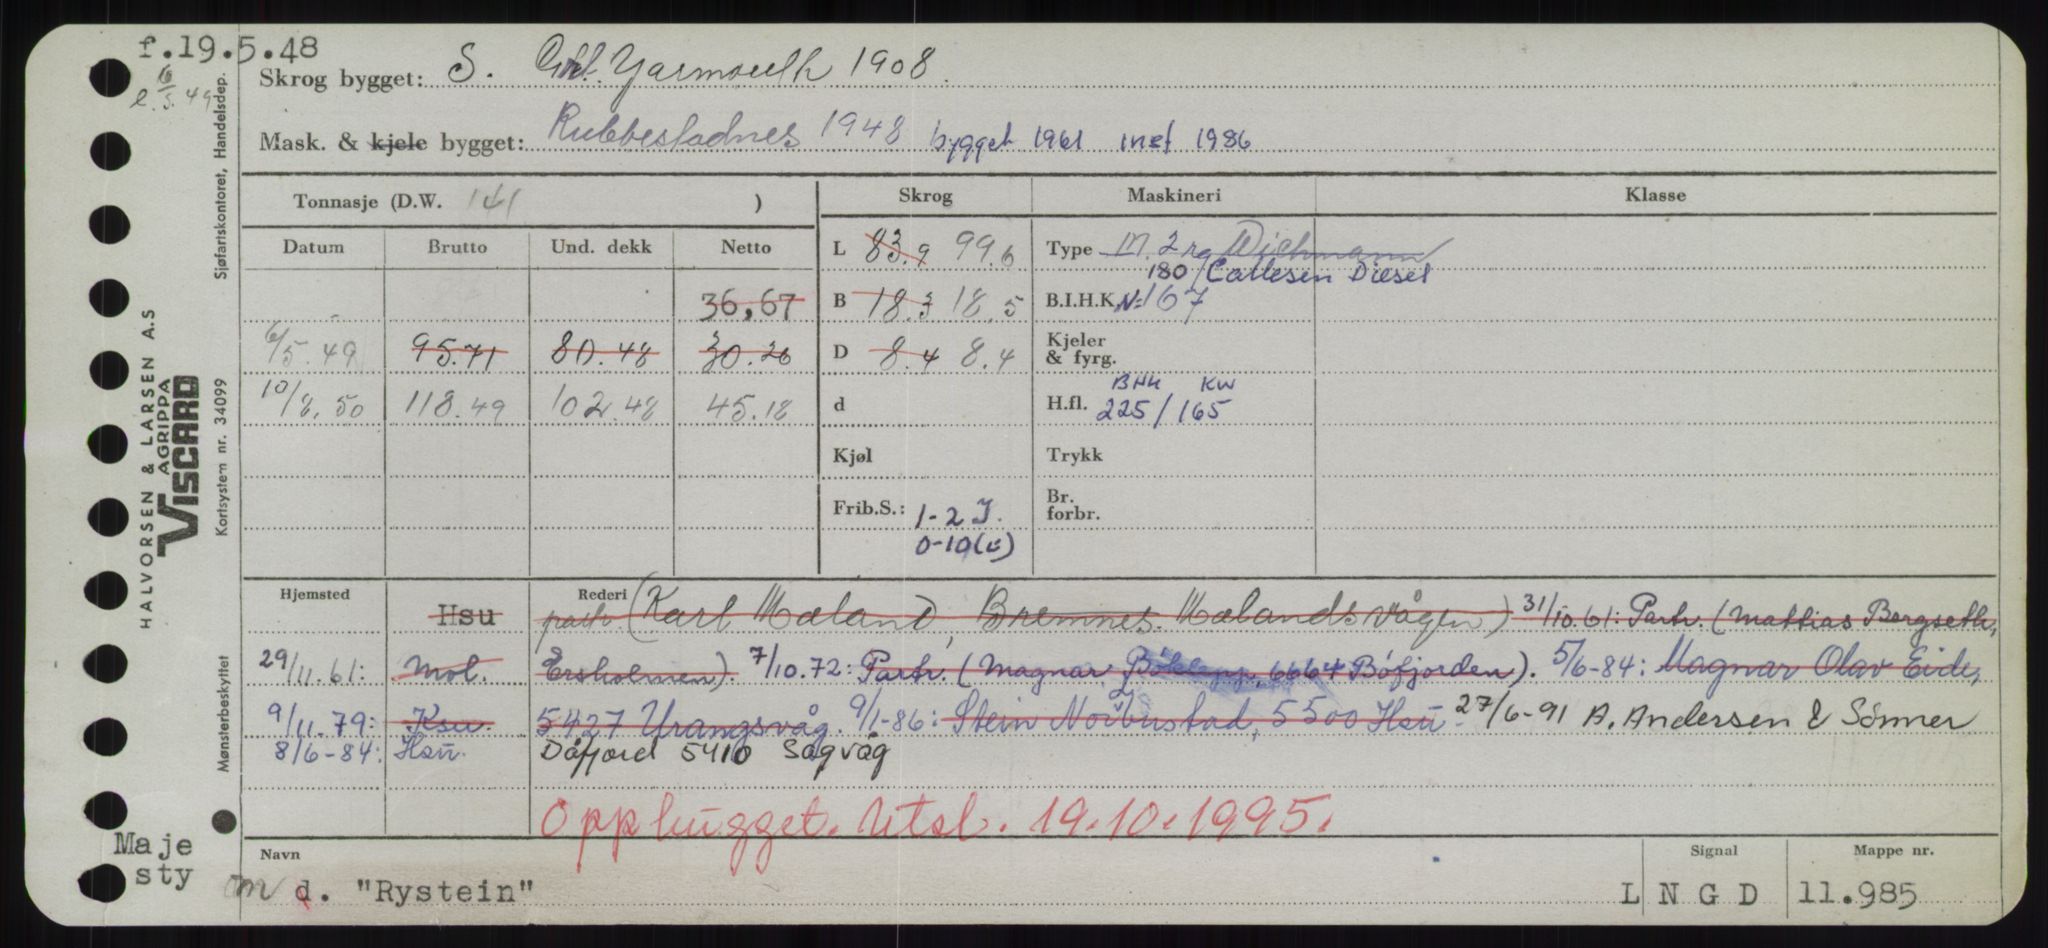 f.19.5.48
Skrog bygget: S. Grt. Yarmouth 1908
6/5.49
Mask. & kjele bygget: Rubbestadnes 1948 bygget 1961 inst 1986
Sjøfartskontoret, Handelsdep.
Tonnasje (D.W. 141 ) Skrog Maskineri Klasse
Datum Brutto Und. dekk Netto L 83.9 99.6 Type M. 2 Wichmann
180 / Callesen Diesel
36,67 B 18.3 18.5 B.I.H.K. N=167
6/5.49 95.71 80.48 30.26 D 8.4 8.4 Kjeler & fyrg.
BHK KW
10/8.50 118.49 102.48 45.18 d H.fl. 225/165
Kjøl Trykk
Frib.S.: 1-2 Br. forbr.
0-10
HALVORSEN & LARSEN A.S
AGRIPPA
VISCARD
Kortsystem nr. 34099
Mønsterbeskyttet
Hjemsted Hsu Rederi partr (Karl Mæland, Bremnes. Mælandsvågen) 31/10.61: Partr. (Mattias Bergseth,
29/11.61: Mol. Ersholmen). 7/10.72: Partr. (Magnar Bøklepp, 6664 Bøfjorden). 5/6-84: Magnar Olav Eide,
9/11.79: Ksu. 5427 Urangsvåg. 9/1-86: Stein 5500 Hsu 27/6-91 A. Andersen & Sønner
8/6-84: Hsu. Dåfjord 5410 Sagvåg
Opphugget. Utsl. 19.10.1995.
Maje
sty
Navn Signal Mappe nr.
m d. "Rystein" L N G D 11.985